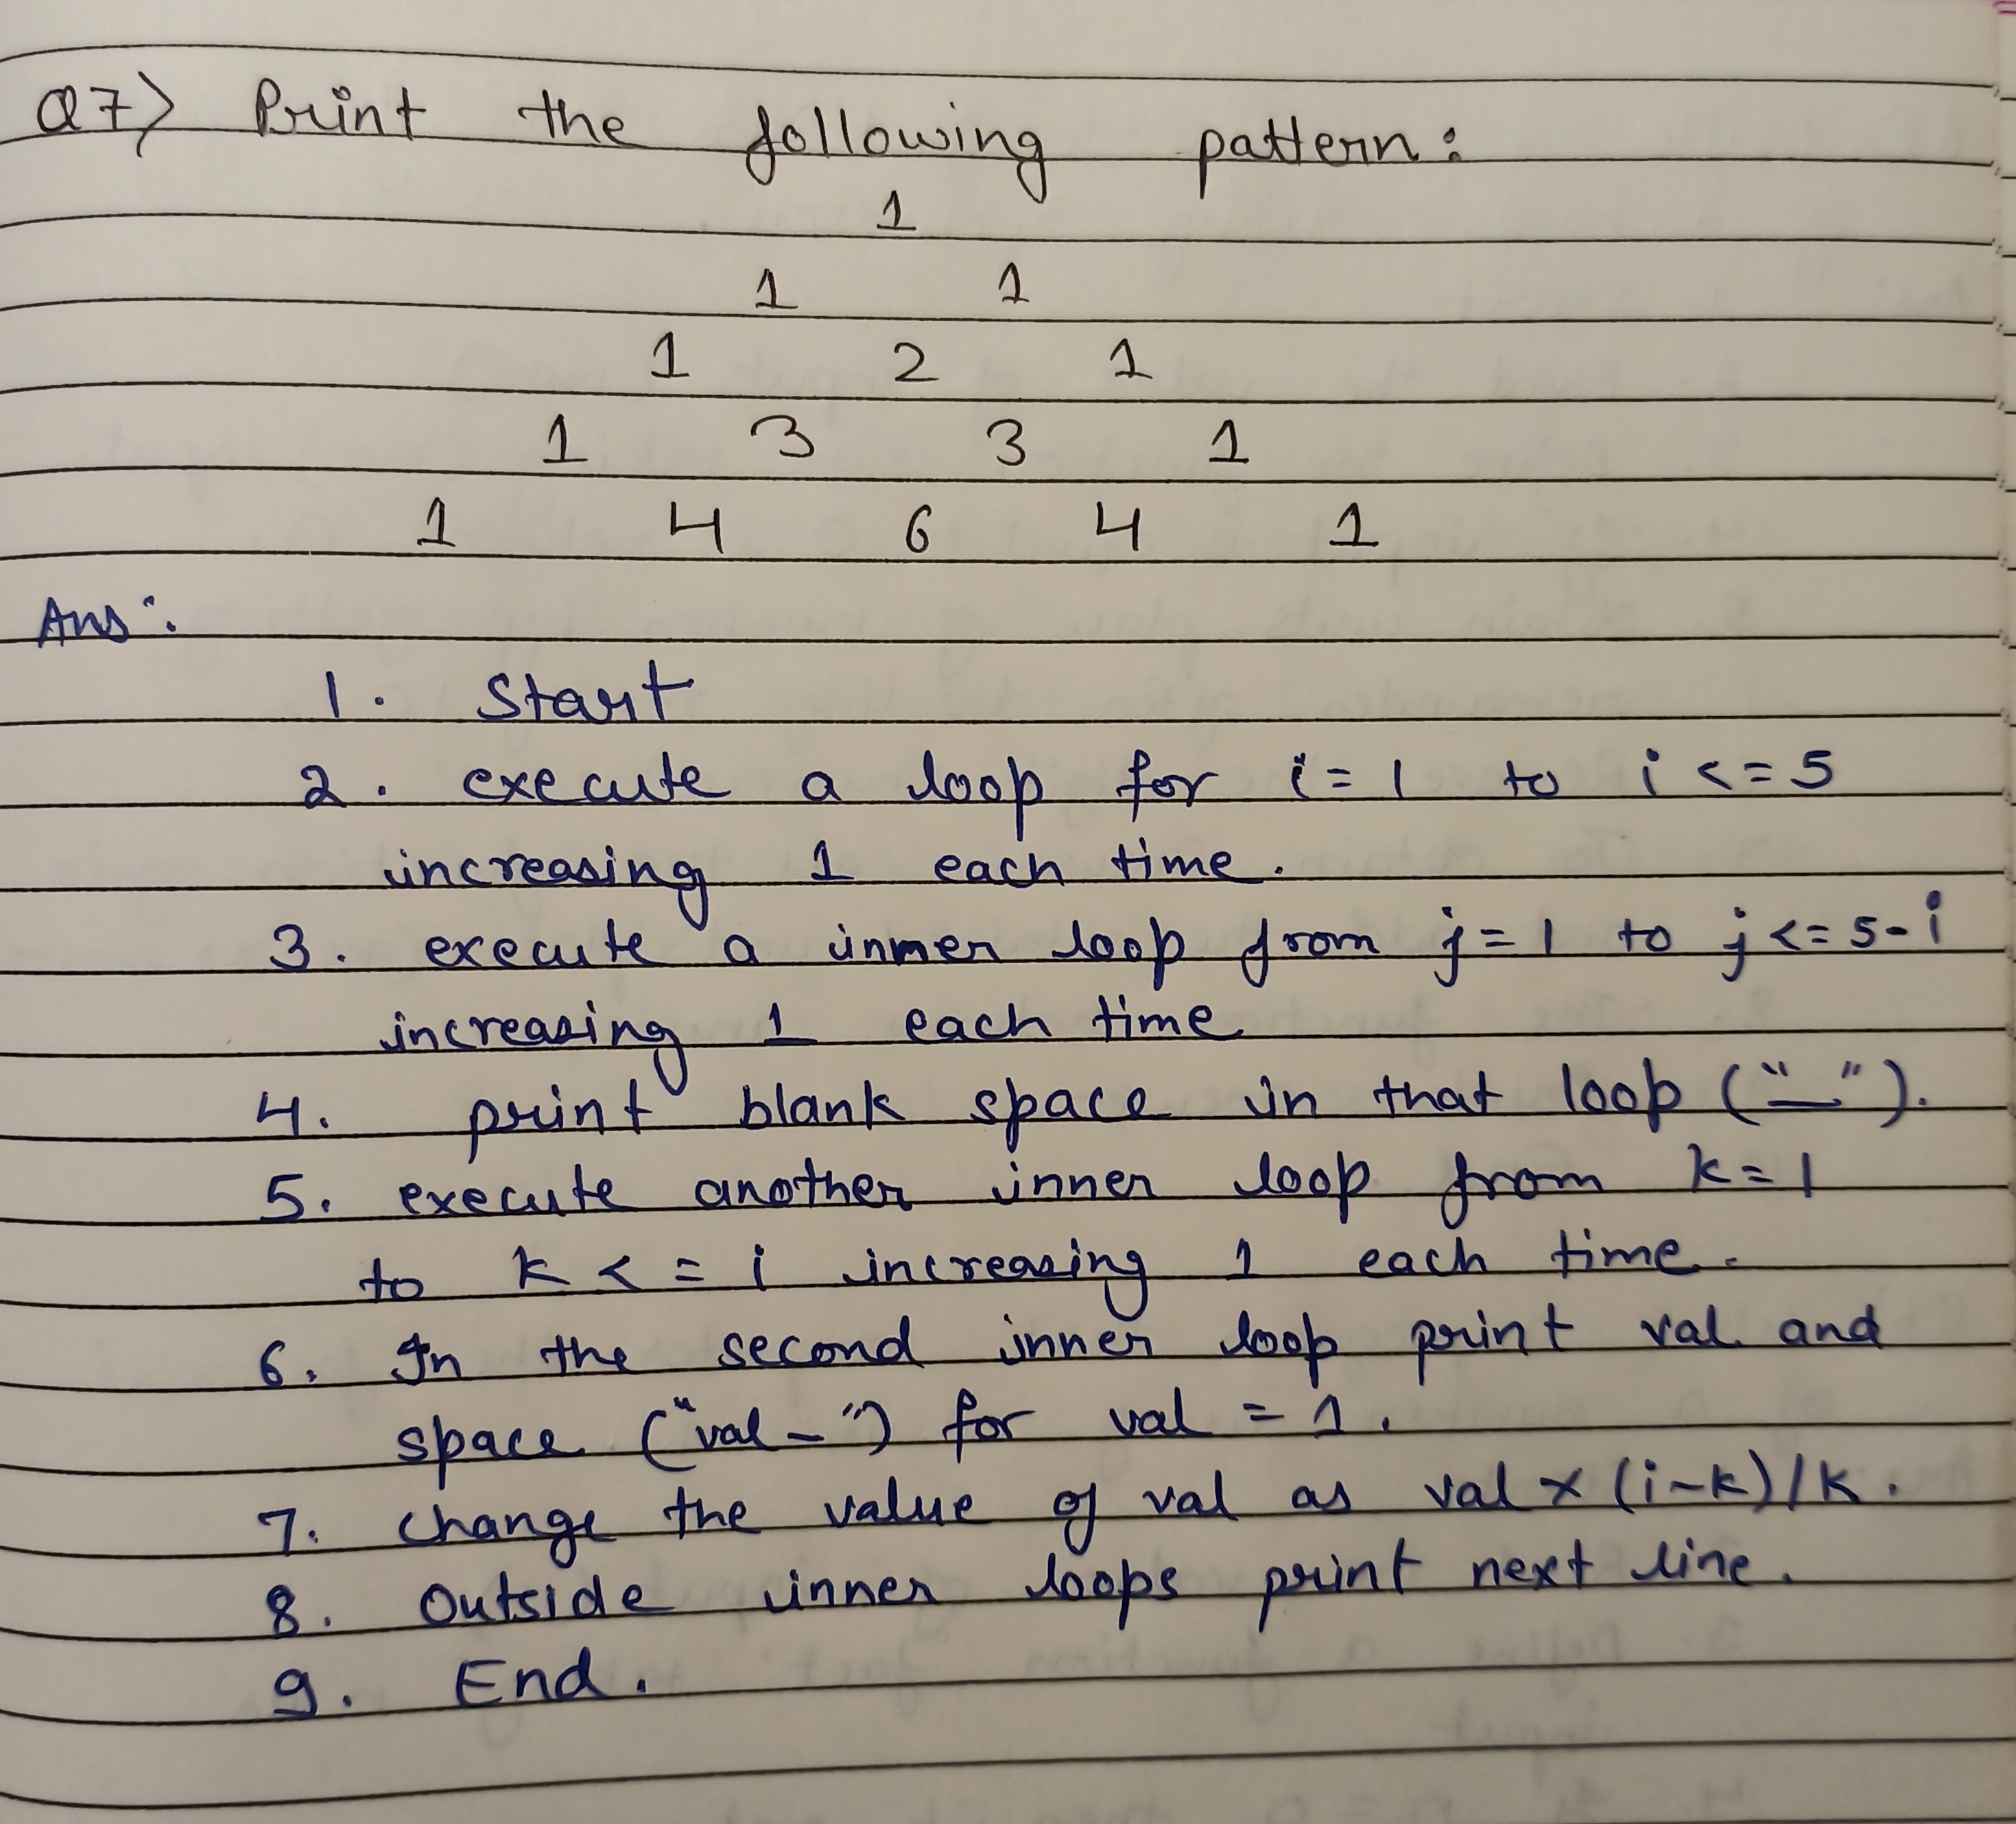 Q7) Print the following pattern:
1
1 1
1 2 1
1 3 3 1
1 4 6 4 1
Ans:
1. Start
2. execute a loop for i = 1 to i <= 5
increasing 1 each time.
3. execute a inner loop from j = 1 to j <= 5-i
increasing 1 each time
4. print blank space in that loop ("_").
5. execute another inner loop from k = 1
to k <= i increasing 1 each time.
6. In the second inner loop print val and
space ("val_") for val = 1.
7. change the value of val as val x (i-k)/k.
8. Outside inner loops print next line.
9. End.